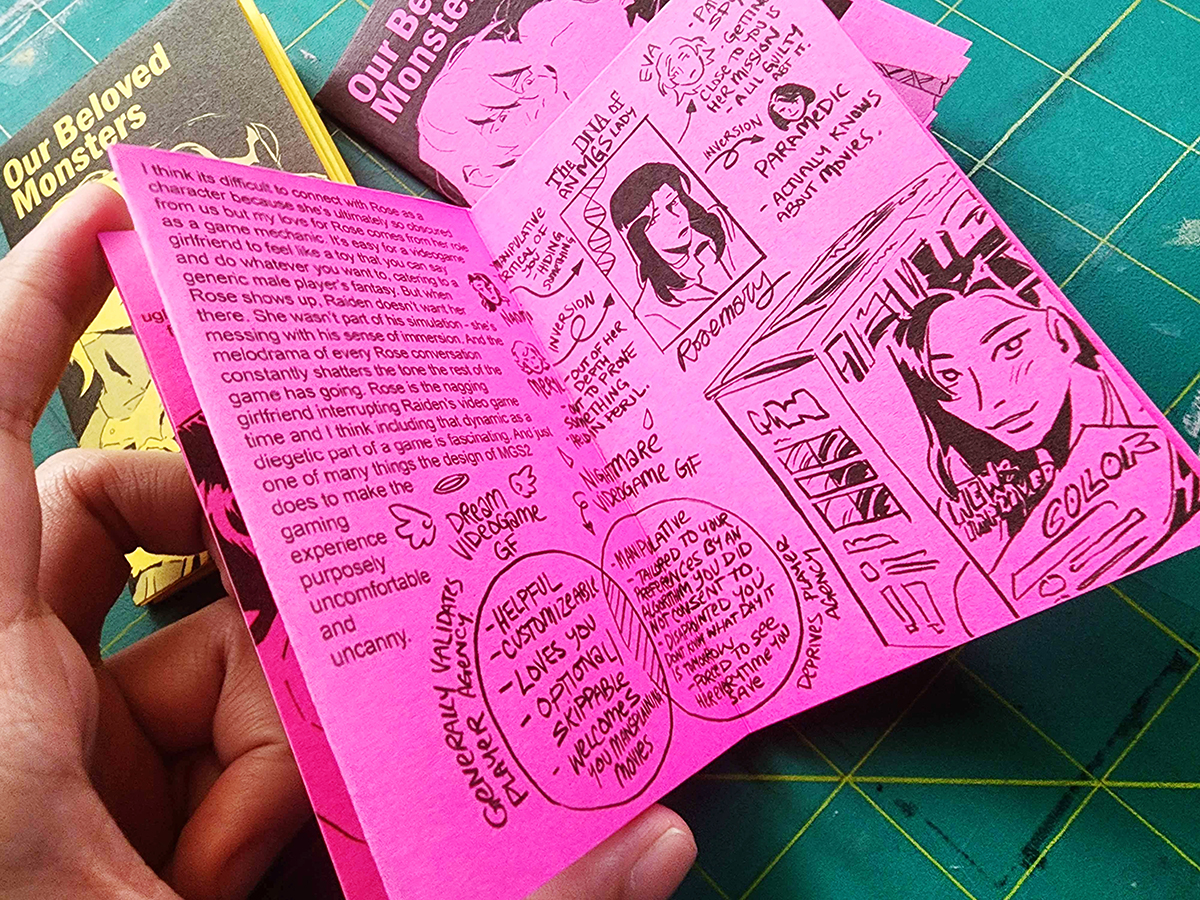 Our Beloved
Monsters
Our Be
Monsters
I think its difficult to connect with Rose as a
character because she's ultimately so obscured
from us but my love for Rose comes from her role
as a game mechanic. It's easy for a videogame
girlfriend to feel like a toy that you can say
and do whatever you want to, catering to a
generic male player's fantasy. But when
Rose shows up, Raiden doesn't want her
there. She wasn't part of his simulation - she's
messing with his sense of immersion. And the
melodrama of every Rose conversation
constantly shatters the tone the rest of the
game has going. Rose is the nagging
girlfriend interrupting Raiden's video game
time and I think including that dynamic as a
diegetic part of a game is fascinating. And just
one of many things the design of MGS2
does to make the
gaming
experience
purposely
uncomfortable
and
uncanny.
DREAM
VIDEOGAME
GF
GENERALLY VALIDATES
PLAYER AGENCY
- HELPFUL
- CUSTOMIZEABLE
- LOVES YOU
- OPTIONAL/
SKIPPABLE
- WELCOMES
YOU MANSPLAINING
MOVIES
NIGHTMARE
VIDEOGAME GF
- MANIPULATIVE
- TAILORED TO YOUR
PREFERENCES BY AN
ALGORITHM YOU DID
NOT CONSENT TO
- DISAPPOINTED YOU
DONT KNOW WHAT DAY IT
IS TOMORROW
- FORCED TO SEE
HER EVERYTIME YOU
SAVE
DEPRIVES PLAYER
AGENCY
THE DNA OF
AN MGS LADY
MANIPULATIVE
CRITICAL OF
YOU
HIDING
SOMETHING
NAOMI
INVERSION
MERYL
- OUT OF HER
DEPTH
OUT TO PROVE
SOMETHING
IN PERIL.
Rosemary
EVA
SPY
GETTING
CLOSE TO YOU IS
HER MISSION
- A LIL GUILTY
ABT IT.
INVERSION
PARAMEDIC
- ACTUALLY KNOWS
ABOUT MOVIES.
COLLOR